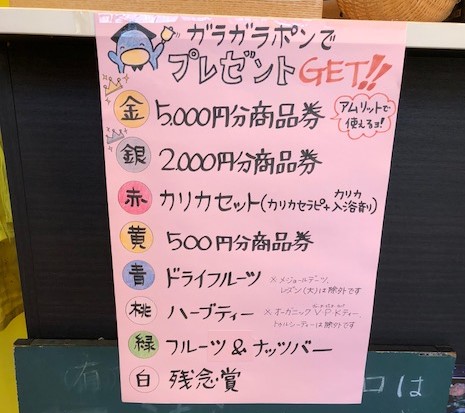 ガラガラポンで
プレゼントGET!!
金 5,000円分商品券
アムリットで
使えるヨ!
銀 2,000円分商品券
赤 カリカセット(カリカセラピ+カリカ入浴剤)
黄 500円分商品券
青 ドライフルーツ ※メジョールデーツ、
レーズン(大)は除外です
桃 ハーブティー ※オーガニックVPKティー、
トゥルシーティーは除外です
緑 フルーツ&ナッツバー
白 残念賞
は